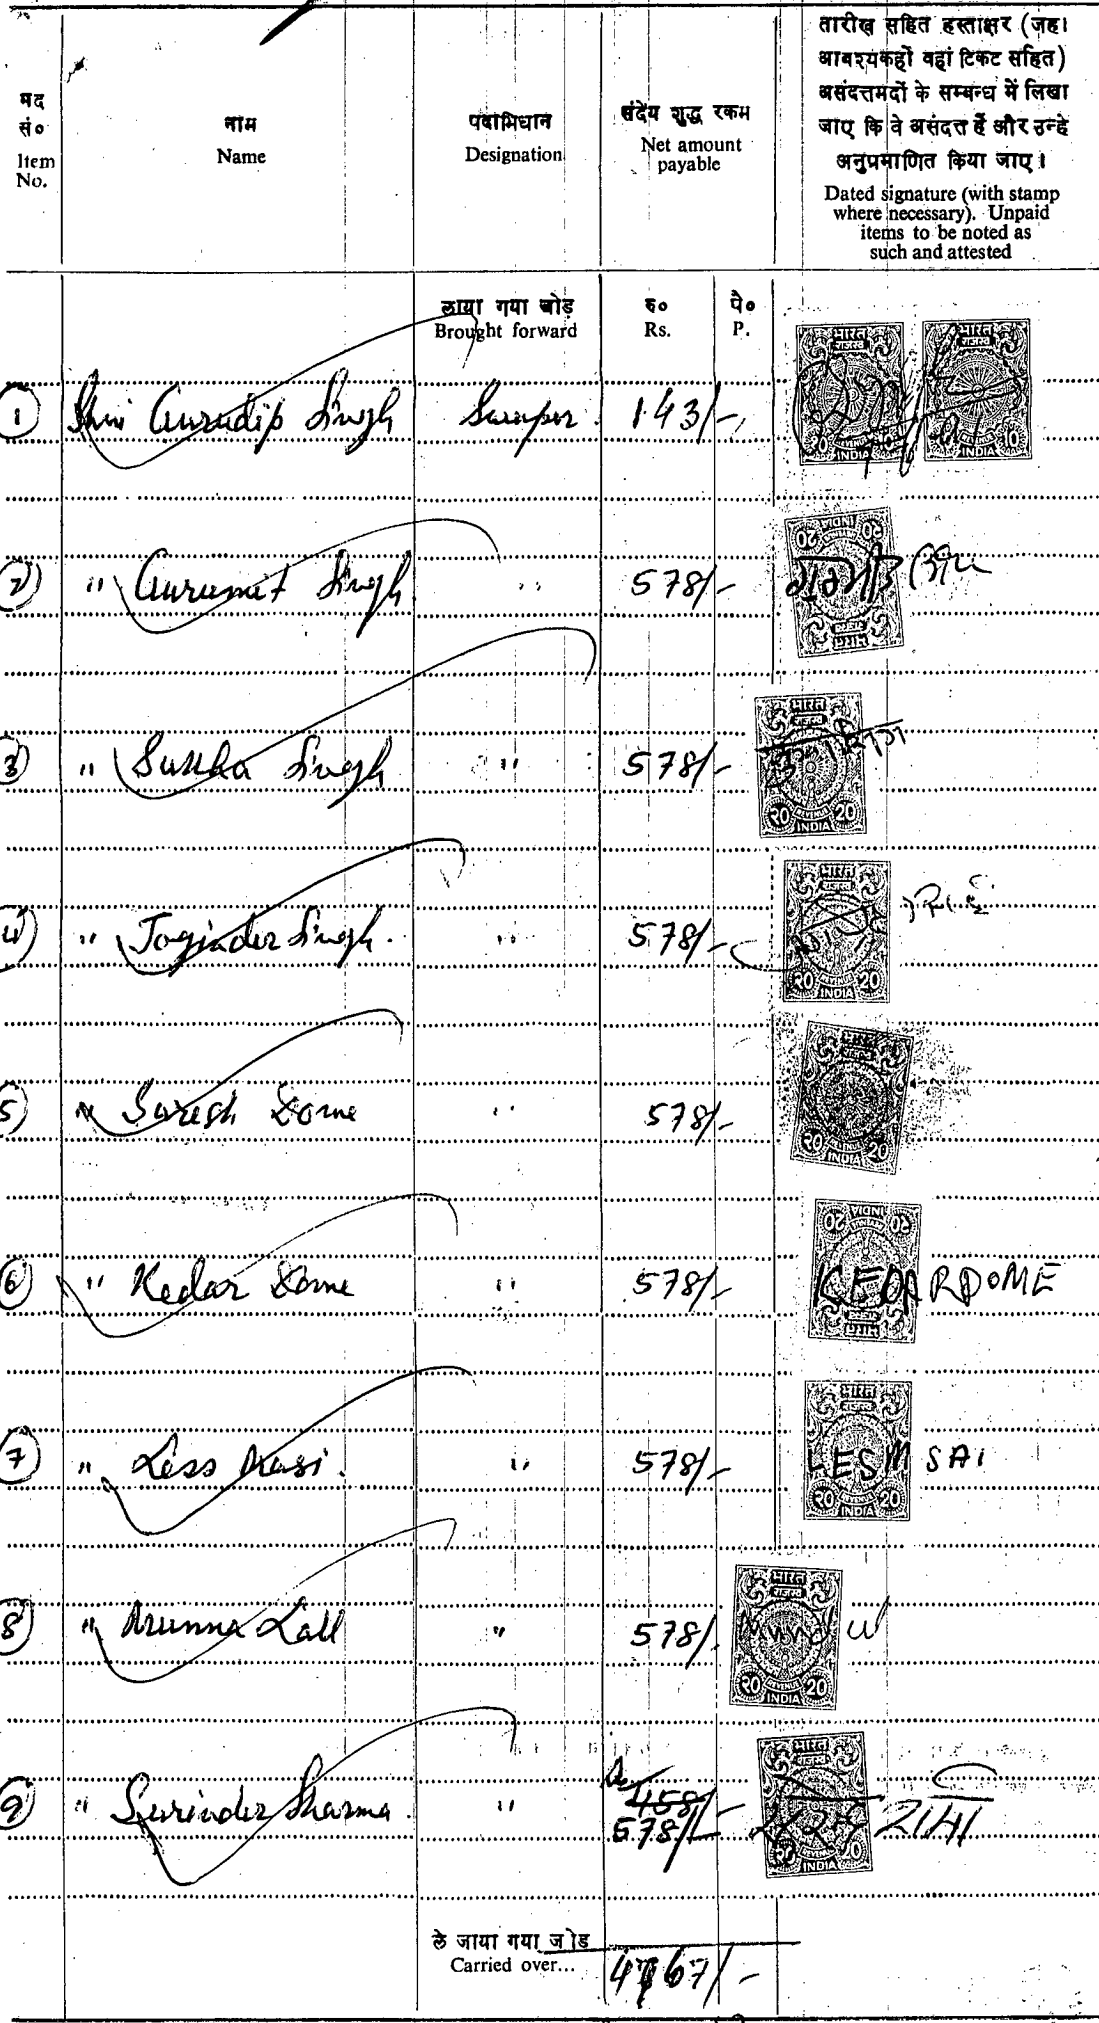 मद सं० Item No.
नाम Name
पदाभिधान Designation
संदेय शुद्ध रकम Net amount payable
तारीख सहित हस्ताक्षर (जहां
आवश्यकहों वहां टिकट सहित)
असंदत्तमदों के सम्बन्ध में लिखा
जाए कि वे असंदत्त हें और उन्हे
अनुप्रमाणित किया जाए।
Dated signature (with stamp
where necessary). Unpaid
items to be noted as
such and attested
लाया गया जोड़ रु० पै०
Brought forward Rs. P.
1 Shri Gurudip Singh 143/-
2 " Gurumit Singh " 578/-
3 " Singh " 578/-
4 " Joginder Singh. " 578/-
5 " Suresh Dome " 578/-
6 " Kedar Dome " 578/- KEDAR DOME
7 " Less " 578/- LESM SAI
8 " Munna Lall " 578/-
9 " Surinder Sharma. " 458/-
578/-
ले जाया गया जोड
Carried over... 4767/-